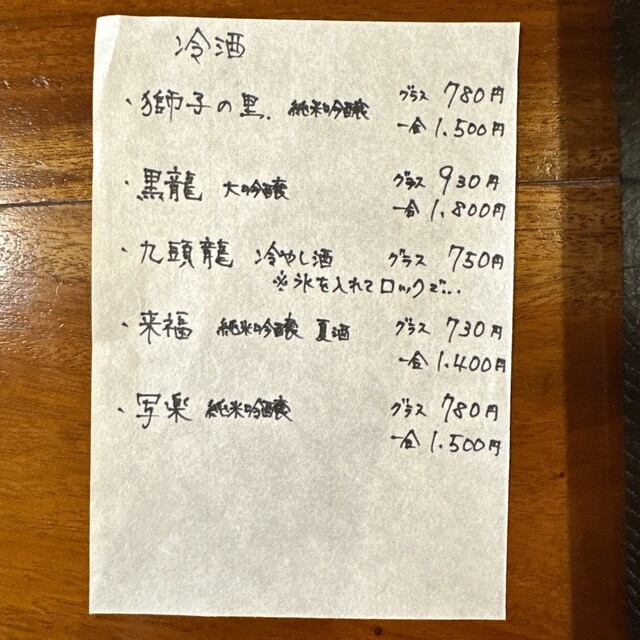 冷酒
・獅子の里. 純米吟醸 グラス 780円
一合 1.500円
・黒龍 大吟醸 グラス 930円
一合 1.800円
・九頭龍 冷やし酒 グラス 750円
※氷を入れてロックで...
・来福 純米吟醸 夏酒 グラス 730円
一合 1.400円
・写楽 純米吟醸 グラス 780円
一合 1.500円